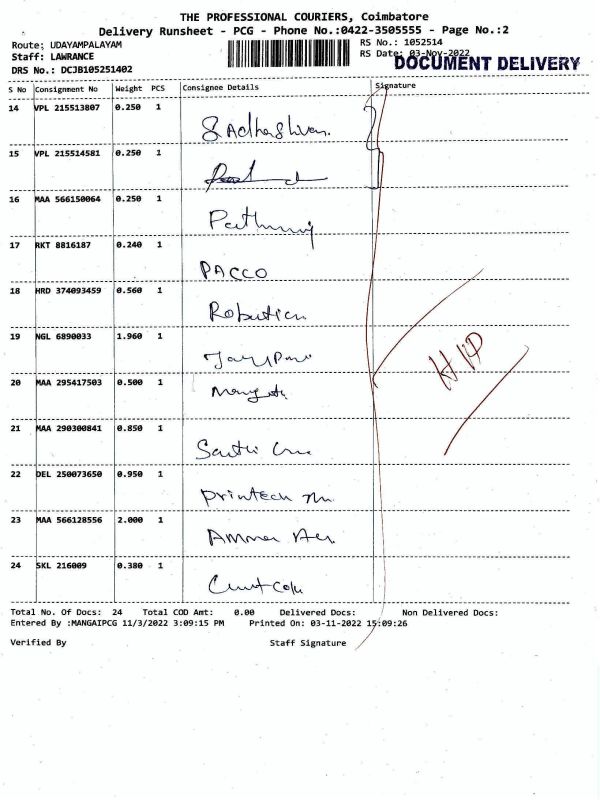 THE PROFESSIONAL COURIERS, Coimbatore
Delivery Runsheet - PCG - Phone No.:0422-3505555 - Page No.:2
Route; UDAYAMPALAYAM RS No.: 1052514
Staff: LAWRANCE RS Date: 03-Nov-2022
DOCUMENT DELIVERY
DRS No.: DCJB105251402
S No Consignment No Weight PCS Consignee Details Signature
14 VPL 215513807 0.250 1
Sadhashivan.
15 VPL 215514581 0.250 1
16 MAA 566150064 0.250 1
17 RKT 8816187 0.240 1
PACCO
18 HRD 374093459 0.560 1
Robotics
19 NGL 6890033 1.960 1
20 MAA 295417503 0.500 1
21 MAA 290300841 0.850 1
22 DEL 250073650 0.950 1
Printech
23 MAA 566128556 2.000 1
24 SKL 216009 0.380 1
Total No. Of Docs: 24 Total COD Amt: 0.00 Delivered Docs: Non Delivered Docs:
Entered By :MANGAIPCG 11/3/2022 3:09:15 PM Printed On: 03-11-2022 15:09:26
Verified By Staff Signature